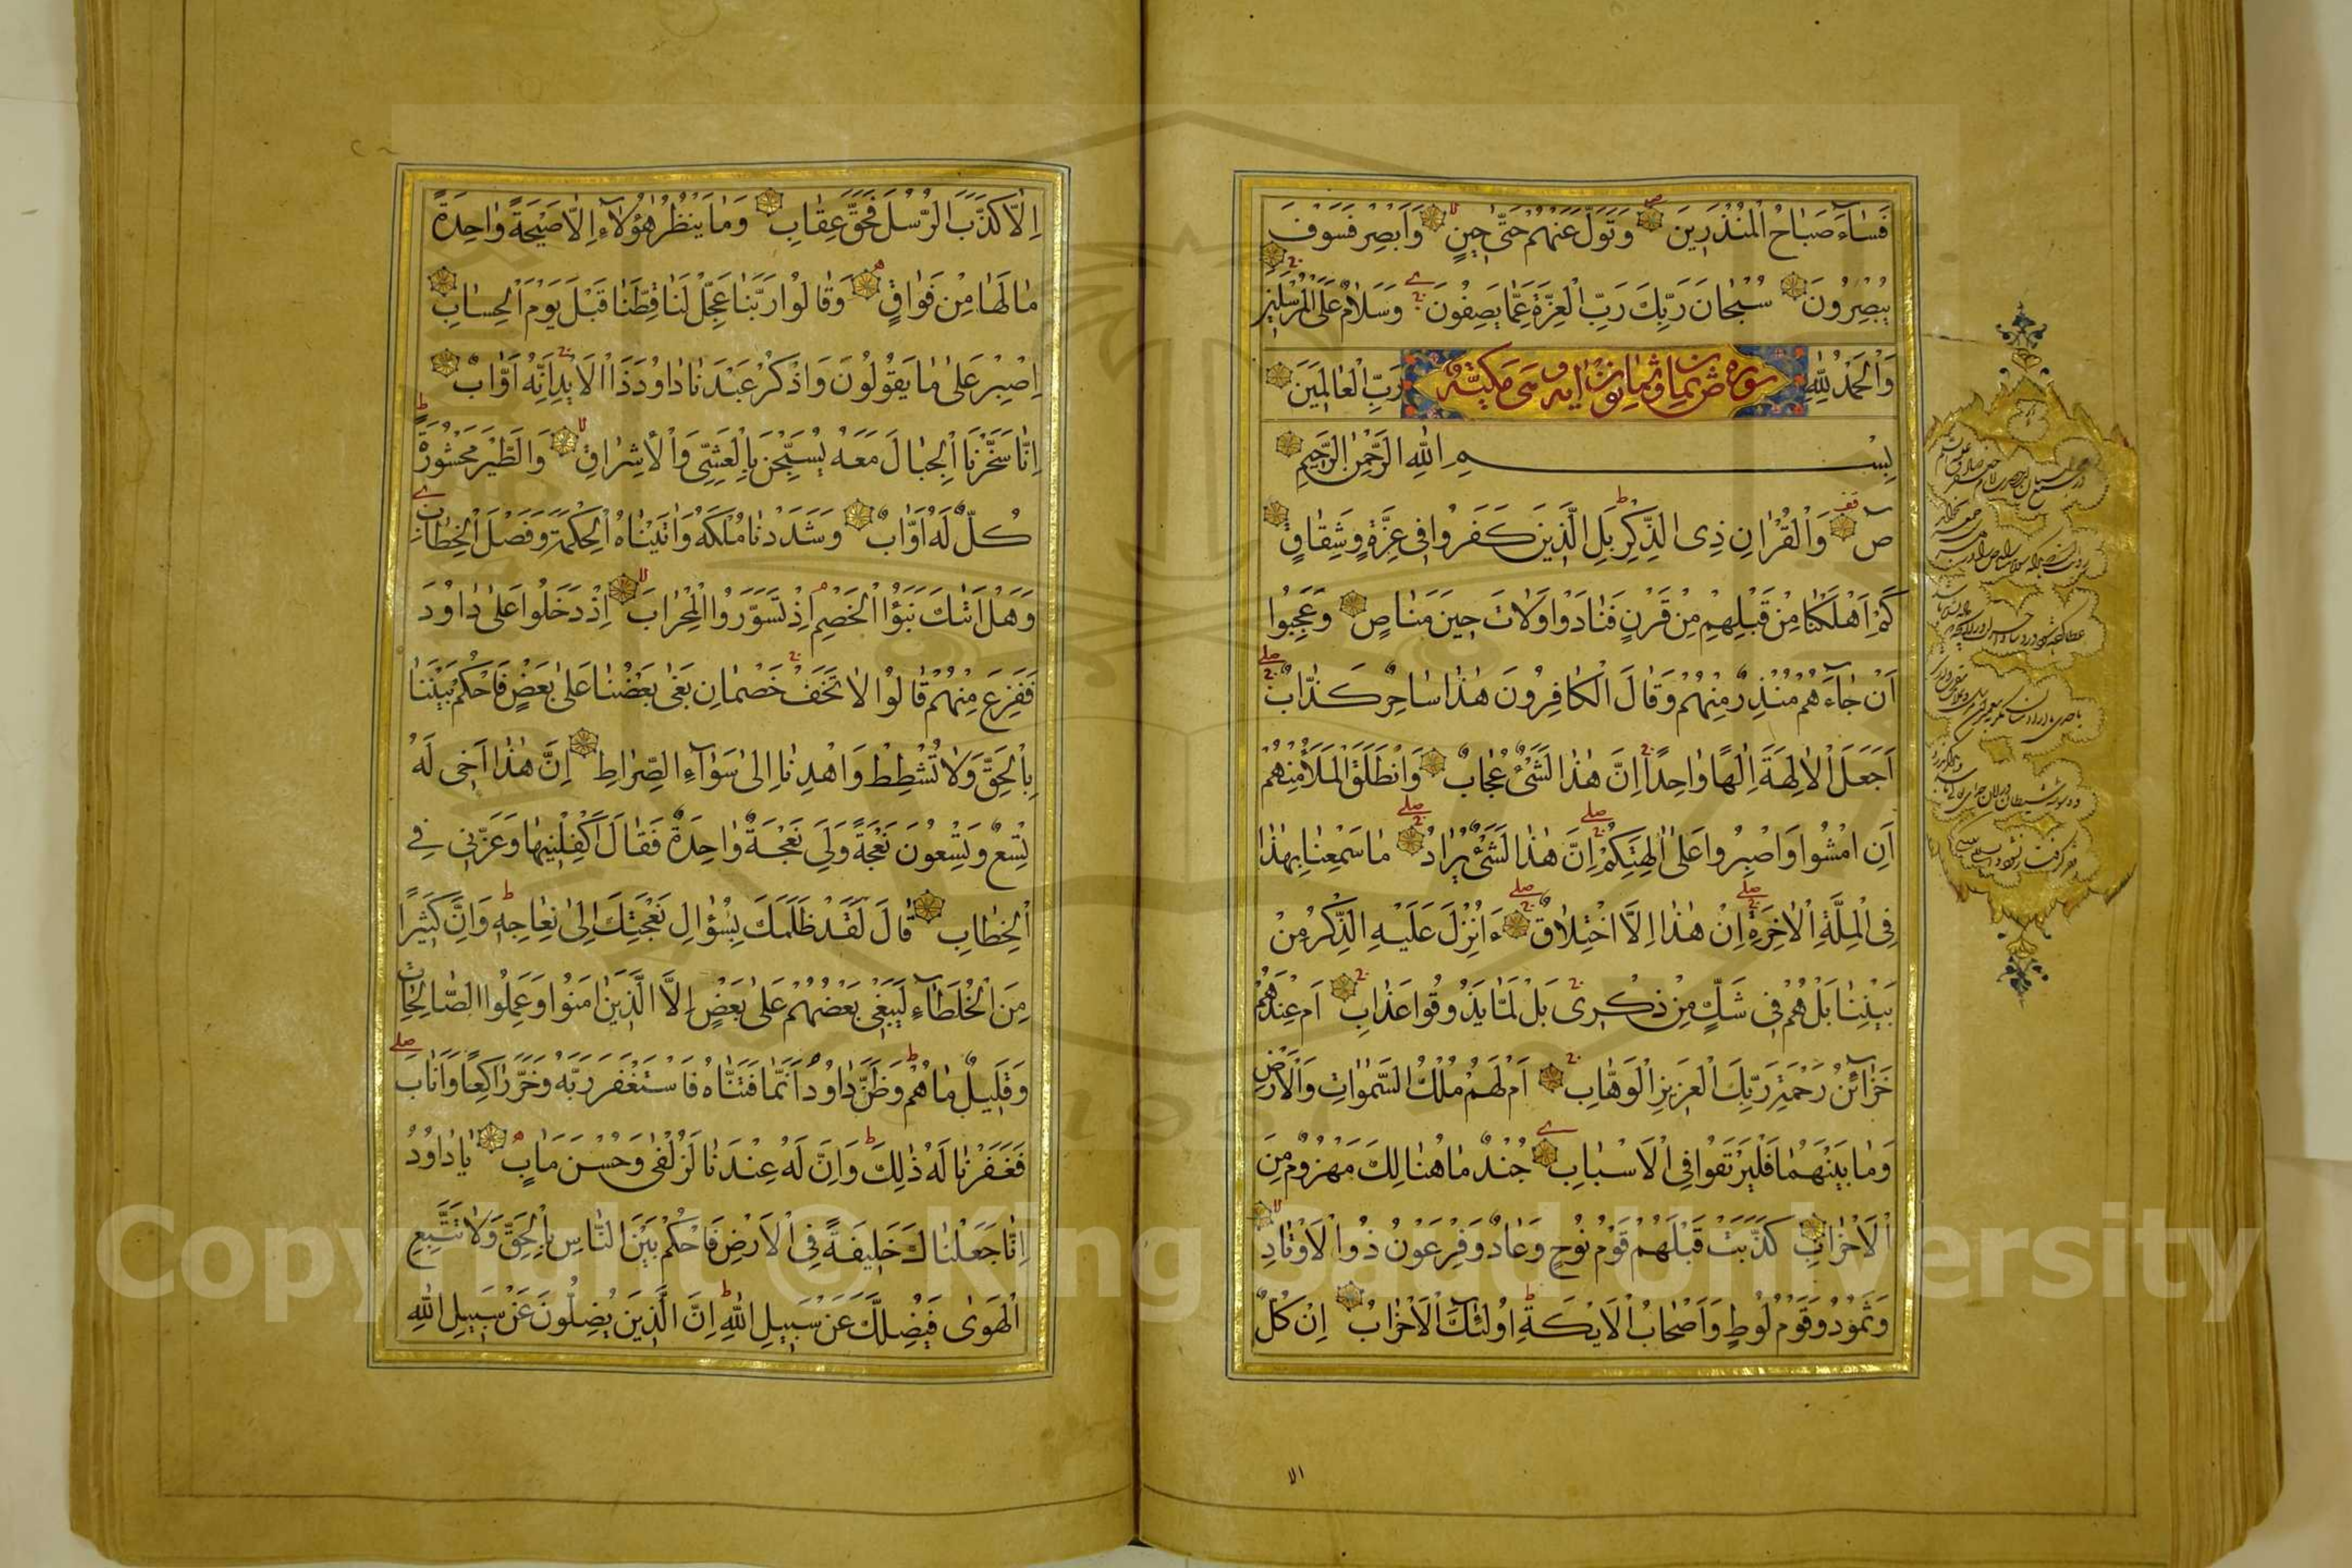 فَسَآءَ صَبَاحُ الْمُنْذَرِينَ وَتَوَلَّ عَنْهُمْ حَتّٰى حِينٍ وَاَبْصِرْ فَسَوْفَ
يُبْصِرُونَ سُبْحَانَ رَبِّكَ رَبِّ الْعِزَّةِ عَمَّا يَصِفُونَ وَسَلَامٌ عَلَى الْمُرْسَلِينَ
وَالْحَمْدُ لِلّٰهِ رَبِّ الْعَالَمِينَ
سورة ص ثمان وثمانون آية وهي مكية
بِسْمِ اللهِ الرَّحْمٰنِ الرَّحِيمِ
صٓ وَالْقُرْاٰنِ ذِى الذِّكْرِ بَلِ الَّذِينَ كَفَرُوا فِى عِزَّةٍ وَشِقَاقٍ
كَمْ اَهْلَكْنَا مِنْ قَبْلِهِمْ مِنْ قَرْنٍ فَنَادَوْا وَلَاتَ حِينَ مَنَاصٍ وَعَجِبُوا
اَنْ جَآءَهُمْ مُنْذِرٌ مِنْهُمْ وَقَالَ الْكَافِرُونَ هٰذَا سَاحِرٌ كَذَّابٌ
اَجَعَلَ الْاٰلِهَةَ اِلٰهًا وَاحِدًا اِنَّ هٰذَا لَشَىْءٌ عُجَابٌ وَانْطَلَقَ الْمَلَأُ مِنْهُمْ
اَنِ امْشُوا وَاصْبِرُوا عَلٰى اٰلِهَتِكُمْ اِنَّ هٰذَا لَشَىْءٌ يُرَادُ مَا سَمِعْنَا بِهٰذَا
فِى الْمِلَّةِ الْاٰخِرَةِ اِنْ هٰذَا اِلَّا اخْتِلَاقٌ ءَاُنْزِلَ عَلَيْهِ الذِّكْرُ مِنْ
بَيْنِنَا بَلْ هُمْ فِى شَكٍّ مِنْ ذِكْرِى بَلْ لَمَّا يَذُوقُوا عَذَابِ اَمْ عِنْدَهُمْ
خَزَآئِنُ رَحْمَةِ رَبِّكَ الْعَزِيزِ الْوَهَّابِ اَمْ لَهُمْ مُلْكُ السَّمٰوَاتِ وَالْاَرْضِ
وَمَا بَيْنَهُمَا فَلْيَرْتَقُوا فِى الْاَسْبَابِ جُنْدٌ مَا هُنَالِكَ مَهْزُومٌ مِنَ
الْاَحْزَابِ كَذَّبَتْ قَبْلَهُمْ قَوْمُ نُوحٍ وَعَادٌ وَفِرْعَوْنُ ذُوا الْاَوْتَادِ
وَثَمُودُ وَقَوْمُ لُوطٍ وَاَصْحَابُ الْاَيْكَةِ اُولٰئِكَ الْاَحْزَابُ اِنْ كُلٌّ
الا
اِلَّا كَذَّبَ الرُّسُلَ فَحَقَّ عِقَابِ وَمَا يَنْظُرُ هٰؤُلَآءِ اِلَّا صَيْحَةً وَاحِدَةً
مَا لَهَا مِنْ فَوَاقٍ وَقَالُوا رَبَّنَا عَجِّلْ لَنَا قِطَّنَا قَبْلَ يَوْمِ الْحِسَابِ
اِصْبِرْ عَلٰى مَا يَقُولُونَ وَاذْكُرْ عَبْدَنَا دَاوُدَ ذَا الْاَيْدِ اِنَّهُ اَوَّابٌ
اِنَّا سَخَّرْنَا الْجِبَالَ مَعَهُ يُسَبِّحْنَ بِالْعَشِىِّ وَالْاِشْرَاقِ وَالطَّيْرَ مَحْشُورَةً
كُلٌّ لَهُ اَوَّابٌ وَشَدَدْنَا مُلْكَهُ وَاٰتَيْنَاهُ الْحِكْمَةَ وَفَصْلَ الْخِطَابِ
وَهَلْ اَتٰىكَ نَبَؤُا الْخَصْمِ اِذْ تَسَوَّرُوا الْمِحْرَابَ اِذْ دَخَلُوا عَلٰى دَاوُدَ
فَفَزِعَ مِنْهُمْ قَالُوا لَا تَخَفْ خَصْمَانِ بَغٰى بَعْضُنَا عَلٰى بَعْضٍ فَاحْكُمْ بَيْنَنَا
بِالْحَقِّ وَلَا تُشْطِطْ وَاهْدِنَا اِلٰى سَوَآءِ الصِّرَاطِ اِنَّ هٰذَا اَخِى لَهُ
تِسْعٌ وَتِسْعُونَ نَعْجَةً وَلِىَ نَعْجَةٌ وَاحِدَةٌ فَقَالَ اَكْفِلْنِيهَا وَعَزَّنِى فِى
الْخِطَابِ قَالَ لَقَدْ ظَلَمَكَ بِسُؤَالِ نَعْجَتِكَ اِلٰى نِعَاجِهِ وَاِنَّ كَثِيرًا
مِنَ الْخُلَطَآءِ لَيَبْغِى بَعْضُهُمْ عَلٰى بَعْضٍ اِلَّا الَّذِينَ اٰمَنُوا وَعَمِلُوا الصَّالِحَاتِ
وَقَلِيلٌ مَا هُمْ وَظَنَّ دَاوُدُ اَنَّمَا فَتَنَّاهُ فَاسْتَغْفَرَ رَبَّهُ وَخَرَّ رَاكِعًا وَاَنَابَ
فَغَفَرْنَا لَهُ ذٰلِكَ وَاِنَّ لَهُ عِنْدَنَا لَزُلْفٰى وَحُسْنَ مَاٰبٍ يَا دَاوُدُ
اِنَّا جَعَلْنَاكَ خَلِيفَةً فِى الْاَرْضِ فَاحْكُمْ بَيْنَ النَّاسِ بِالْحَقِّ وَلَا تَتَّبِعِ
الْهَوٰى فَيُضِلَّكَ عَنْ سَبِيلِ اللهِ اِنَّ الَّذِينَ يَضِلُّونَ عَنْ سَبِيلِ اللهِ
Copyright © King Saud University